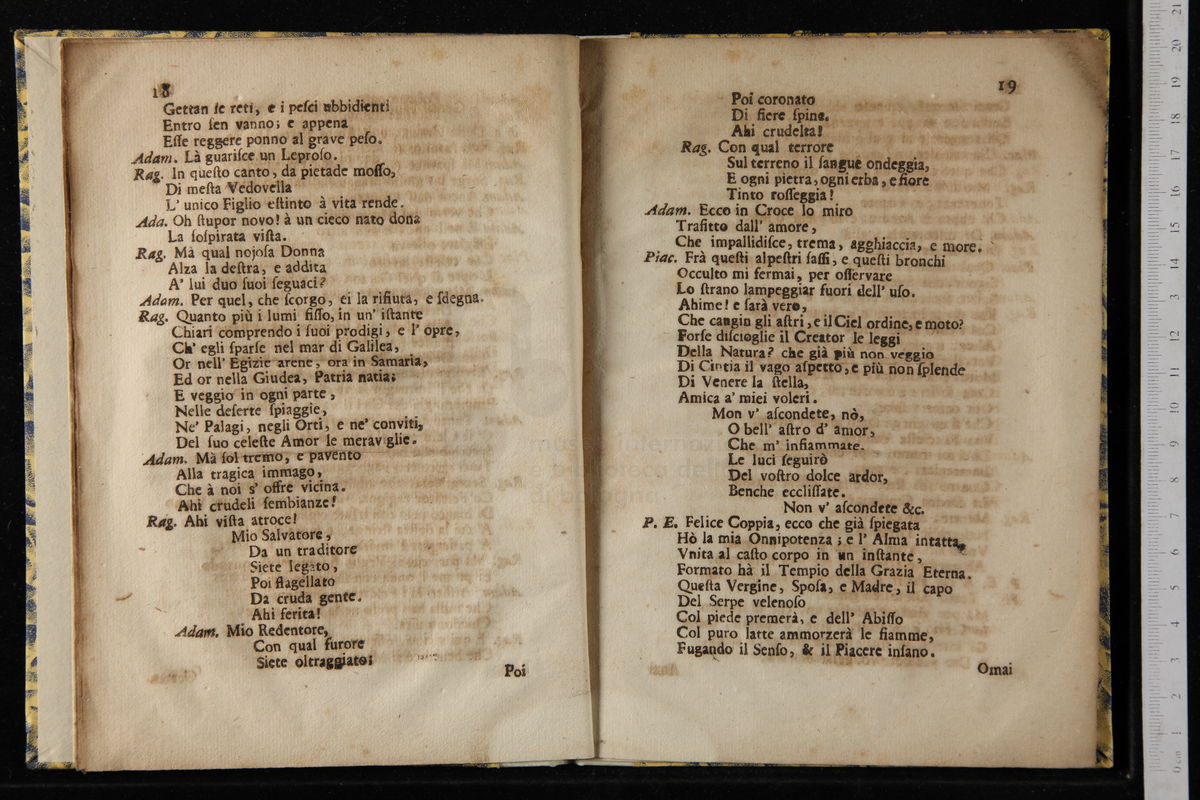 18
Gettan le reti, e i peſci ubbidienti
Entro ſen vanno; e appena
Eſſe reggere ponno al grave peſo.
Adam. Là guariſce un Leproſo.
Rag. In queſto canto, da pietade moſſo,
Di meſta Vedovella
L' unico Figlio eſtinto à vita rende.
Ada. Oh ſtupor novo! à un cieco nato dona
La ſoſpirata viſta.
Rag. Mà qual nojoſa Donna
Alza la deſtra, e addita
A' lui duo ſuoi ſeguaci?
Adam. Per quel, che ſcorgo, ei la rifiuta, e ſdegna.
Rag. Quanto più i lumi fiſſo, in un' iſtante
Chiari comprendo i ſuoi prodigi, e l' opre,
Ch' egli ſparſe nel mar di Galilea,
Or nell' Egizie arene, ora in Samaria,
Ed or nella Giudea, Patria natia;
E veggio in ogni parte,
Nelle deſerte ſpiaggie,
Ne' Palagi, negli Orti, e ne' conviti,
Del ſuo celeſte Amor le meraviglie.
Adam. Mà ſol tremo, e pavento
Alla tragica immago,
Che à noi s' offre vicina.
Ahi crudeli ſembianze!
Rag. Ahi viſta atroce!
Mio Salvatore,
Da un traditore
Siete legato,
Poi flagellato
Da cruda gente.
Ahi ferita!
Adam. Mio Redentore,
Con qual furore
Siete oltraggiato;
Poi
19
Poi coronato
Di fiere ſpine.
Ahi crudeltà!
Rag. Con qual terrore
Sul terreno il ſangue ondeggia,
E ogni pietra, ogni erba, e fiore
Tinto roſſeggia!
Adam. Ecco in Croce lo miro
Trafitto dall' amore,
Che impallidiſce, trema, agghiaccia, e more.
Piac. Frà queſti alpeſtri ſaſſi, e queſti bronchi
Occulto mi fermai, per oſſervare
Lo ſtrano lampeggiar fuori dell' uſo.
Ahime! e ſarà vero,
Che cangin gli aſtri, e il Ciel ordine, e moto?
Forſe diſcioglie il Creator le leggi
Della Natura? che già più non veggio
Di Cintia il vago aſpetto, e più non ſplende
Di Venere la ſtella,
Amica a' miei voleri.
Mon v' aſcondete, nò,
O bell' aſtro d' amor,
Che m' infiammate.
Le luci ſeguirò
Del voſtro dolce ardor,
Benche eccliſſate.
Non v' aſcondete &c.
P. E. Felice Coppia, ecco che già ſpiegata
Hò la mia Onnipotenza; e l' Alma intatta,
Vnita al caſto corpo in un inſtante,
Formato hà il Tempio della Grazia Eterna.
Queſta Vergine, Spoſa, e Madre, il capo
Del Serpe velenoſo
Col piede premerà, e dell' Abiſſo
Col puro latte ammorzerà le fiamme,
Fugando il Senſo, & il Piacere inſano.
Omai